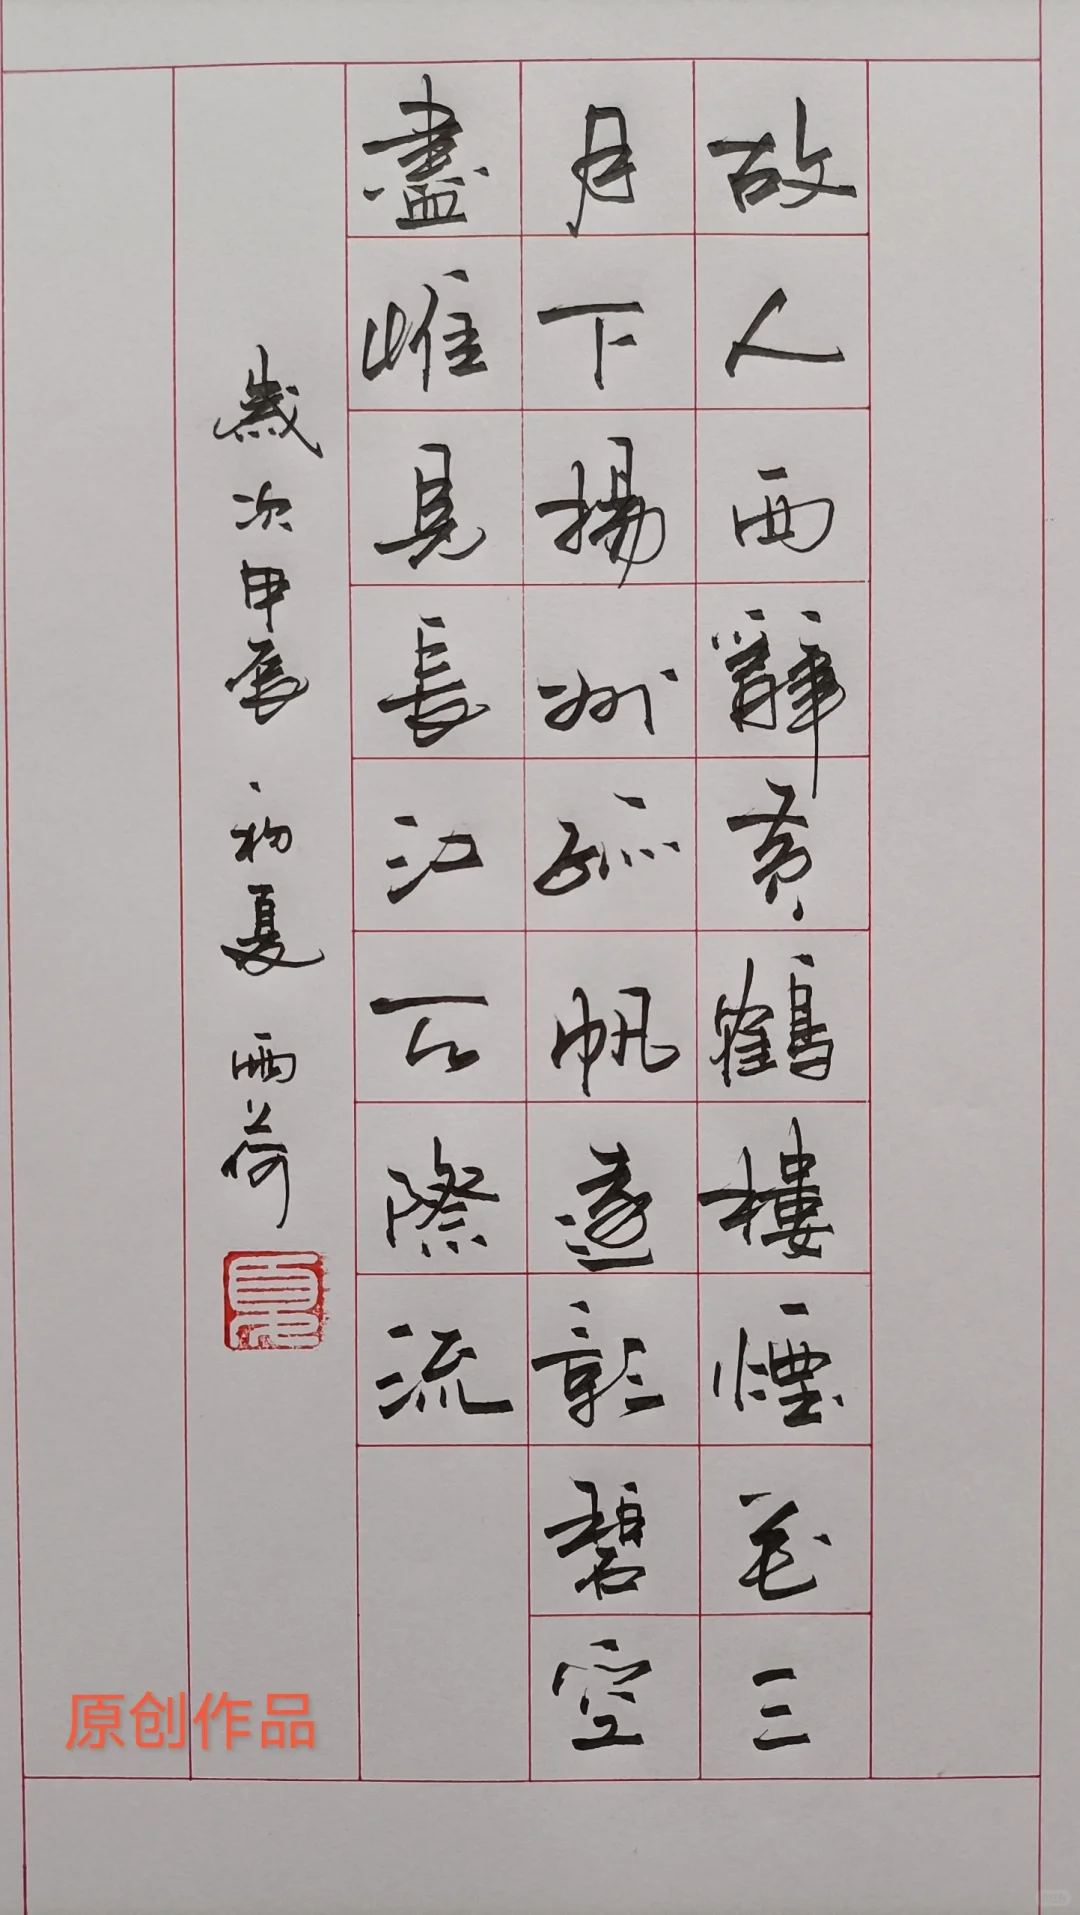 故人西辭黃鶴樓煙花三
月下揚州孤帆遠影碧空
盡唯見長江天際流
歲次甲辰 初夏 雨荷
原创作品